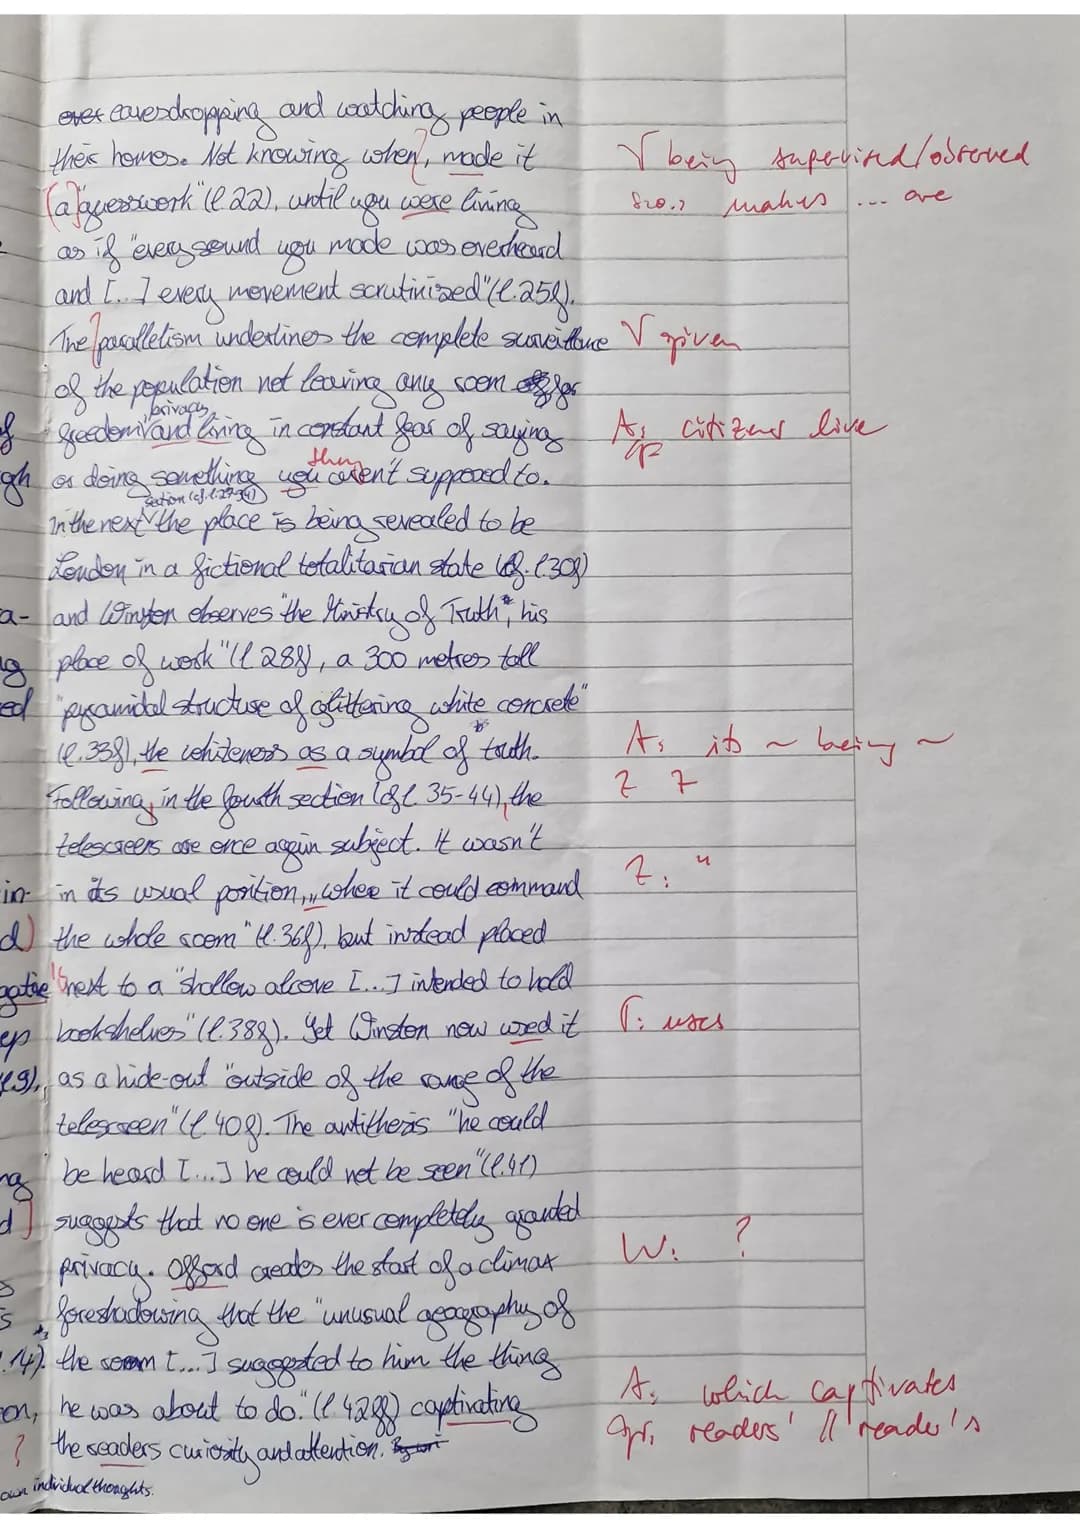 eavesdropping and watching people in
their homes. Not knowing when, made it
√ being supervised/observed
[a] "guesswork" (l. 22), until you were living
makes ... are
as if "every sound you made was overheard
and [...] every movement scrutinised" (l. 25f).
The parallelism underlines the complete surveillance
√ given
of the population not leaving any room for
privacy
freedom and living in constant fear of saying
A: citizens live
gr
they
gh or doing something you aren't supposed to.
section (cf. l. 27-34)
In the next the place is being revealed to be
London in a fictional totalitarian state (cf. l. 30f)
a- and Winston observes "the Ministry of Truth, his
place of work" (l. 28f), a 300 metres tall
ed "pyramidal structure of glittering white concrete"
(l. 33f), the whiteness as a symbol of truth.
A: its ~ being ~
Following, in the fourth section (cf l. 35-44), the
Z Z
telescreens are once again subject. It wasn't
in- in its usual position, "where it could command
Z: "
d) the whole room" (l. 36f), but instead placed
next to a "shallow alcove [...] intended to hold
ep bookshelves" (l. 38f). Yet Winston now used it
T: uses
l 9), as a hide-out "outside of the range of the
telescreen" (l. 40f). The antithesis "he could
be heard [...] he could not be seen" (l. 41)
d] suggests that no one is ever completely granted
privacy. Offord creates the start of a climax
W: ?
s foreshadowing that the "unusual geography of
.14). the room [...] suggested to him the thing
on, he was about to do." (l 42ff) captivating
A: which captivates
? the readers curiosity and attention.
Gr: readers' // reader's
own individual thoughts.